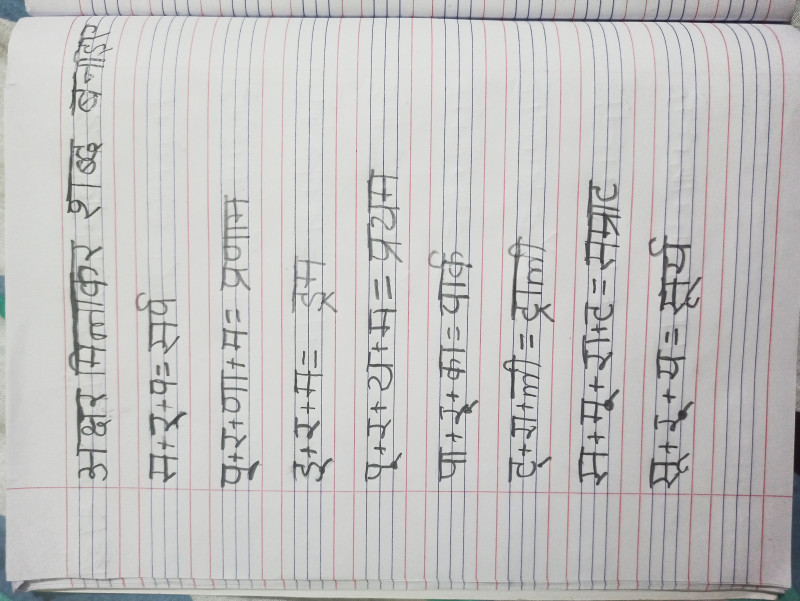 अक्षर मिलाकर शब्द बनाइए
स+र्+प=सर्प
प्+र+णा+म= प्रणाम
ड्+र+म= ड्रम
प्+र+थ+म= प्रथम
पा+र्+क=पार्क
ट्+रा+ली=ट्राली
स+म्+रा+ट=सम्राट
सू+र्+य= सूर्य